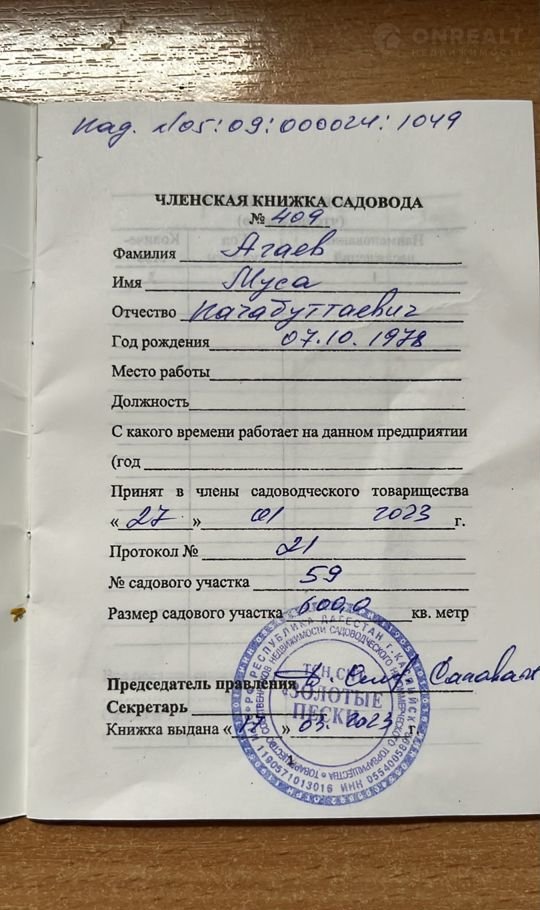 ONREALT
НЕДВИЖИМОСТЬ
Кад. №05:09:000024:1049
ЧЛЕНСКАЯ КНИЖКА САДОВОДА
№ 409
Фамилия Агаев
Имя Муса
Отчество Пачабуттаевич
Год рождения 07.10.1978
Место работы
Должность
С какого времени работает на данном предприятии
(год
Принят в члены садоводческого товарищества
«27» 01 2023 г.
Протокол № 21
№ садового участка 59
Размер садового участка 600,0 кв. метр
РЕСПУБЛИКА ДАГЕСТАН г. КАСПИЙСК
ТСН СНТ
«ЗОЛОТЫЕ
ПЕСКИ»
Председатель правления
Секретарь
Книжка выдана «17» 03. 2023 г.